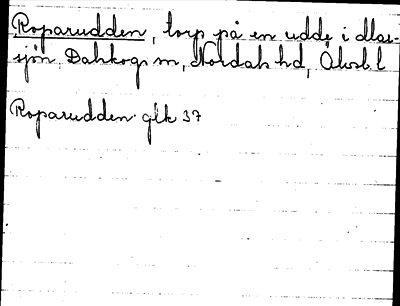 Roparudden, torp på en udde i Mas-
sjön. Dalskogs m, Nordals hd, Älvsb. l
Roparudden glk 37